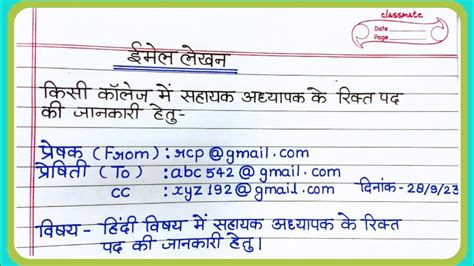 classmate
Date
Page
ईमेल लेखन
किसी कॉलेज में सहायक अध्यापक के रिक्त पद
की जानकारी हेतु-
प्रेषक (From) : rcp@gmail.com
प्रेषिती (To) : abc542@gmail.com
cc : xyz192@gmail.com दिनांक- 28/9/23
विषय - हिंदी विषय में सहायक अध्यापक के रिक्त
पद की जानकारी हेतु।